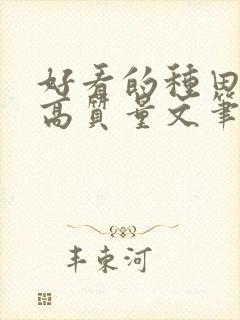 好看的種田
高質量文筆
丰束河